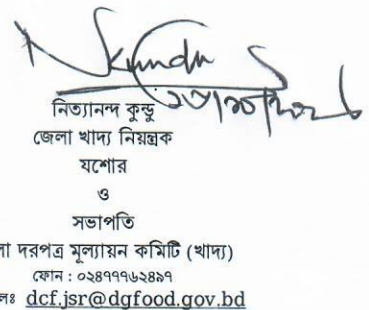 নিত্যানন্দ কুন্ডু
জেলা খাদ্য নিয়ন্ত্রক
যশোর
ও
সভাপতি
দরপত্র মূল্যায়ন কমিটি (খাদ্য)
ফোন : ০২৪৭৭৭৬২৪৯৭
dcf.jsr@dgfood.gov.bd